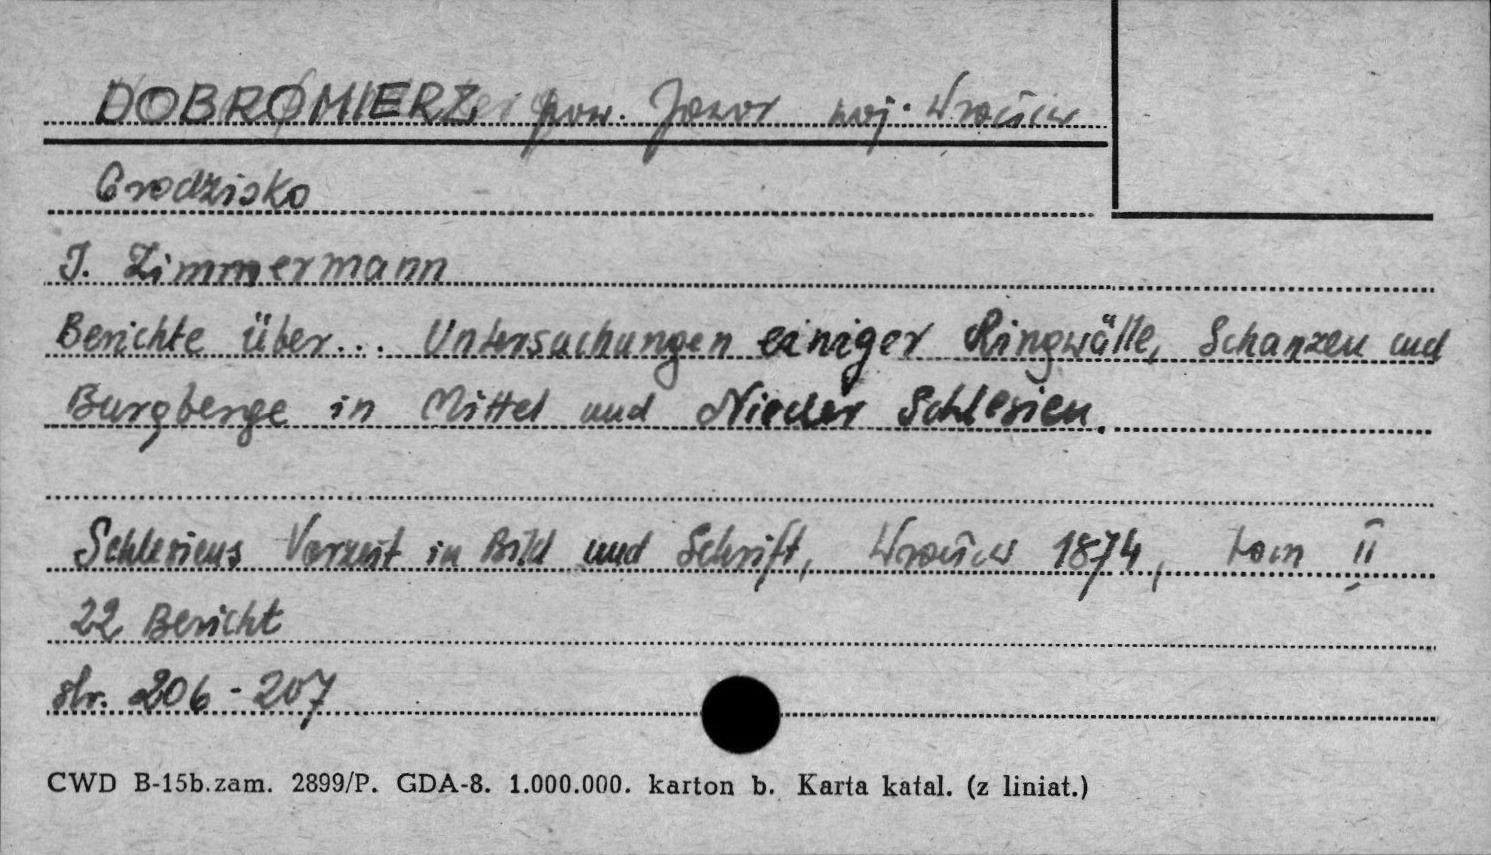 DOBROMIERZ pow. Jawor woj. Wrocław
Grodzisko
J. Zimmermann
Berichte über... Untersuchungen einiger Ringwälle, Schanzen und
Burgberge in Mittel und Nieder Schlesien.
Schlesiens Vorzeit in Bild und Schrift, Wrocław 1874, tom II
22 Bericht
str. 206-207
CWD B-15b.zam. 2899/P. GDA-8. 1.000.000. karton b. Karta katal. (z liniat.)